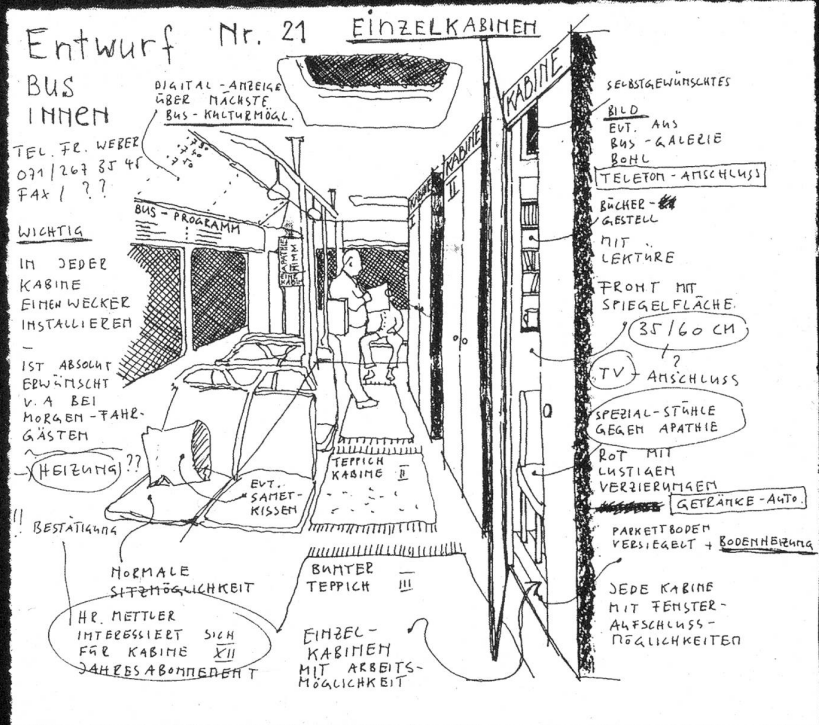 Entwurf Nr. 21 EINZELKABINEN
BUS
INNEN
TEL. FR. WEBER
071/267 35 45
FAX / ??
WICHTIG
IN JEDER
KABINE
EINEN WECKER
INSTALLIEREN
–
IST ABSOLUT
ERWÜNSCHT
V. A BEI
MORGEN-FAHR-
GÄSTEN
HEIZUNG ??
!! BESTÄTIGUNG
DIGITAL-ANZEIGE
ÜBER NÄCHSTE
BUS-KULTURMÖGL.
BUS-PROGRAMM
KABINE
KABINE
II
KABINE
I
EVT.
SAMET-
KISSEN
TEPPICH
KABINE II
NORMALE
SITZMÖGLICHKEIT
BUNTER
TEPPICH III
HR. METTLER
INTERESSIERT SICH
FÜR KABINE XII
JAHRESABONNEMENT
EINZEL-
KABINEN
MIT ARBEITS-
MÖGLICHKEIT
SELBSTGEWÜNSCHTES
BILD
EVT. AUS
BUS-GALERIE
BOHL
TELEFON-ANSCHLUSS
BÜCHER-
GESTELL
MIT
LEKTÜRE
FRONT MIT
SPIEGELFLÄCHE.
35/60 CM
?
TV-ANSCHLUSS
SPEZIAL-STÜHLE
GEGEN APATHIE
ROT MIT
LUSTIGEN
VERZIERUNGEN
GETRÄNKE-AUTO.
PARKETTBODEN
VERSIEGELT + BODENHEIZUNG
JEDE KABINE
MIT FENSTER-
AUFSCHLUSS-
MÖGLICHKEITEN